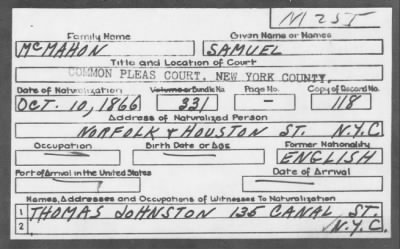 M 251
Family Name Given Name or Names
McMAHON SAMUEL
Title and Location of Court
COMMON PLEAS COURT, NEW YORK COUNTY.
Date of Naturalization Volume or Bundle No. Page No. Copy of Record No.
OCT. 10, 1866 331 - 118
Address of Naturalized Person
NORFOLK & HOUSTON ST. N.Y.C.
Occupation Birth Date or Age Former Nationality
ENGLISH
Port of Arrival in the United States Date of Arrival
Names, Addresses and Occupations of Witnesses To Naturalization
1 THOMAS JOHNSTON 135 CANAL ST.
2 N.Y.C.